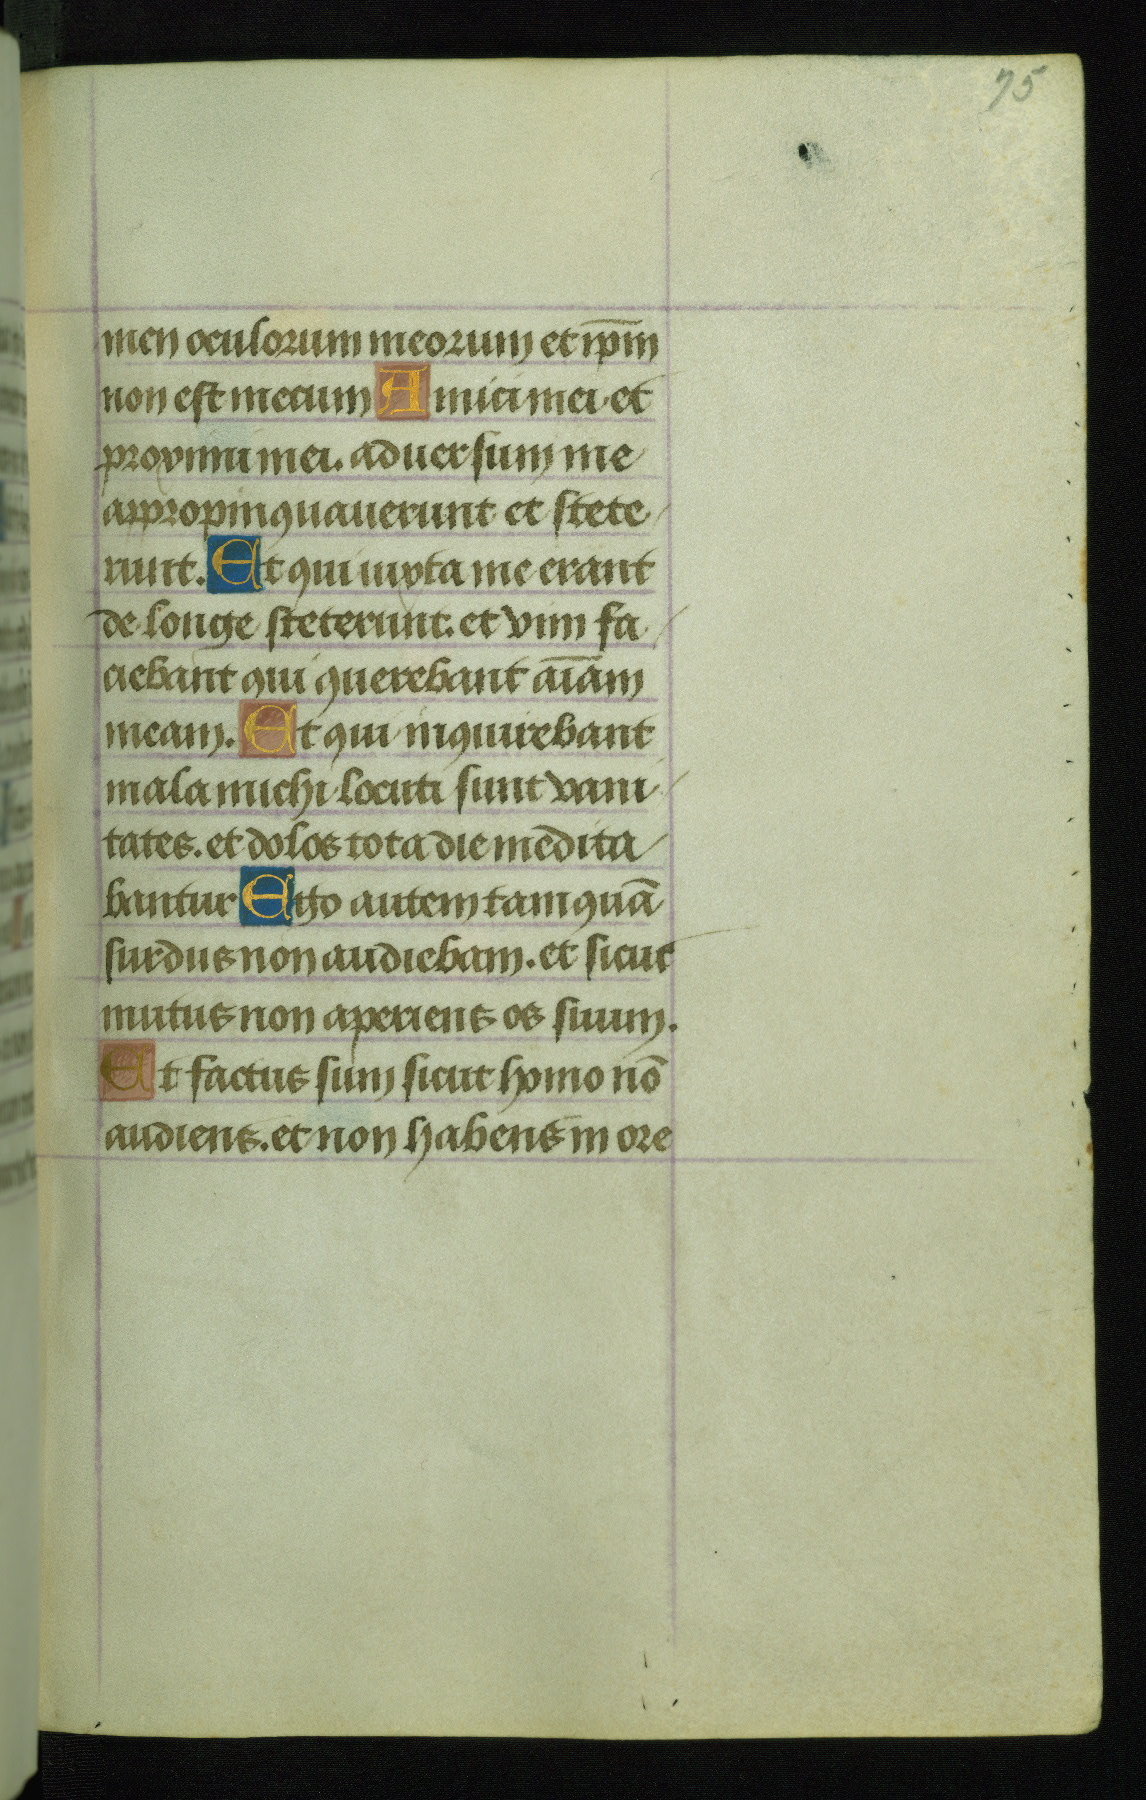 75
men oculorum meorum et ip̄m
non est mecum Amici mei et
proximi mei. aduersum me
appropinquauerunt et stete
runt. Et qui iuxta me erant
de longe steterunt. et vim fa
ciebant qui querebant aīam
meam. Et qui inquirebant
mala michi locuti sunt vani
tates. et dolos tota die medita
bantur Ego autem tamquā
surdus non audiebam. et sicut
mutus non aperiens os suum.
Et factus sum sicut homo nō
audiens. et non habens in ore